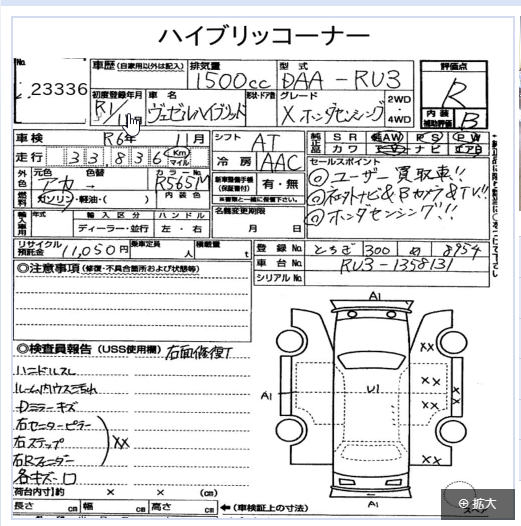 ハイブリッコーナー
No.
23336
車歴 (自家用以外は記入) 排気量 型式 評価点
1500cc DAA-RU3 R
初度登録年月 車名 形状・ドア数 グレード 2WD・4WD 内装補助評価 B
R1/11 ヴェゼルハイブリッド X ホンダセンシング
車検 R6年 11月 シフト AT
走行 33,836 Km マイル 冷房 AAC
S R AW P S P W
カワ ナビ エアB
外色 元色 色替 カラーNo. R565M
アカ → 内装色
燃料 ガソリン・軽油・( )
新車整備手帳(保証書付) 有・無
※書類と一緒に保管下さい。
セールスポイント
◎ユーザー買取車!!
◎ネットナビ&Bカメラ&TV!!
◎ホンダセンシング!!
輸入車用 年式 輸入区分 ハンドル
ディーラー・並行 左・右
名義変更期限
月 日
リサイクル預託金 11,050円 乗車定員 人 積載量 t
登録No. とちぎ 300 め 8954
車台No. RU3-1358131
シリアルNo.
◎注意事項 (修復・不具合箇所および状態等)
◎検査員報告 (USS使用欄) 右面修復T
ハンドルスレ
ルーム内ウス汚れ
Dミラーキズ
右センターピラー
右ステップ XX
右Rフェンダー
各キズー口
A1
XX
XX
U1
XX
A1
XX
XX
A1
荷台内寸)約 × × (cm)
長さ cm 幅 cm 高さ cm ←(車検証上の寸法)
拡大